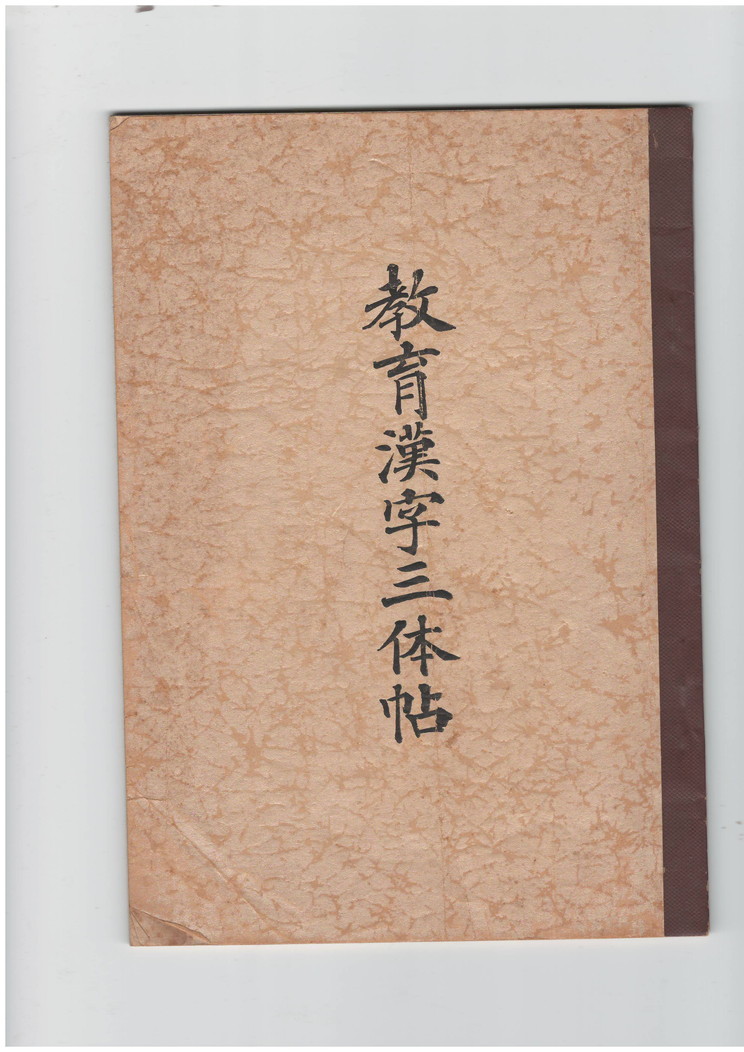 教育漢字三体帖